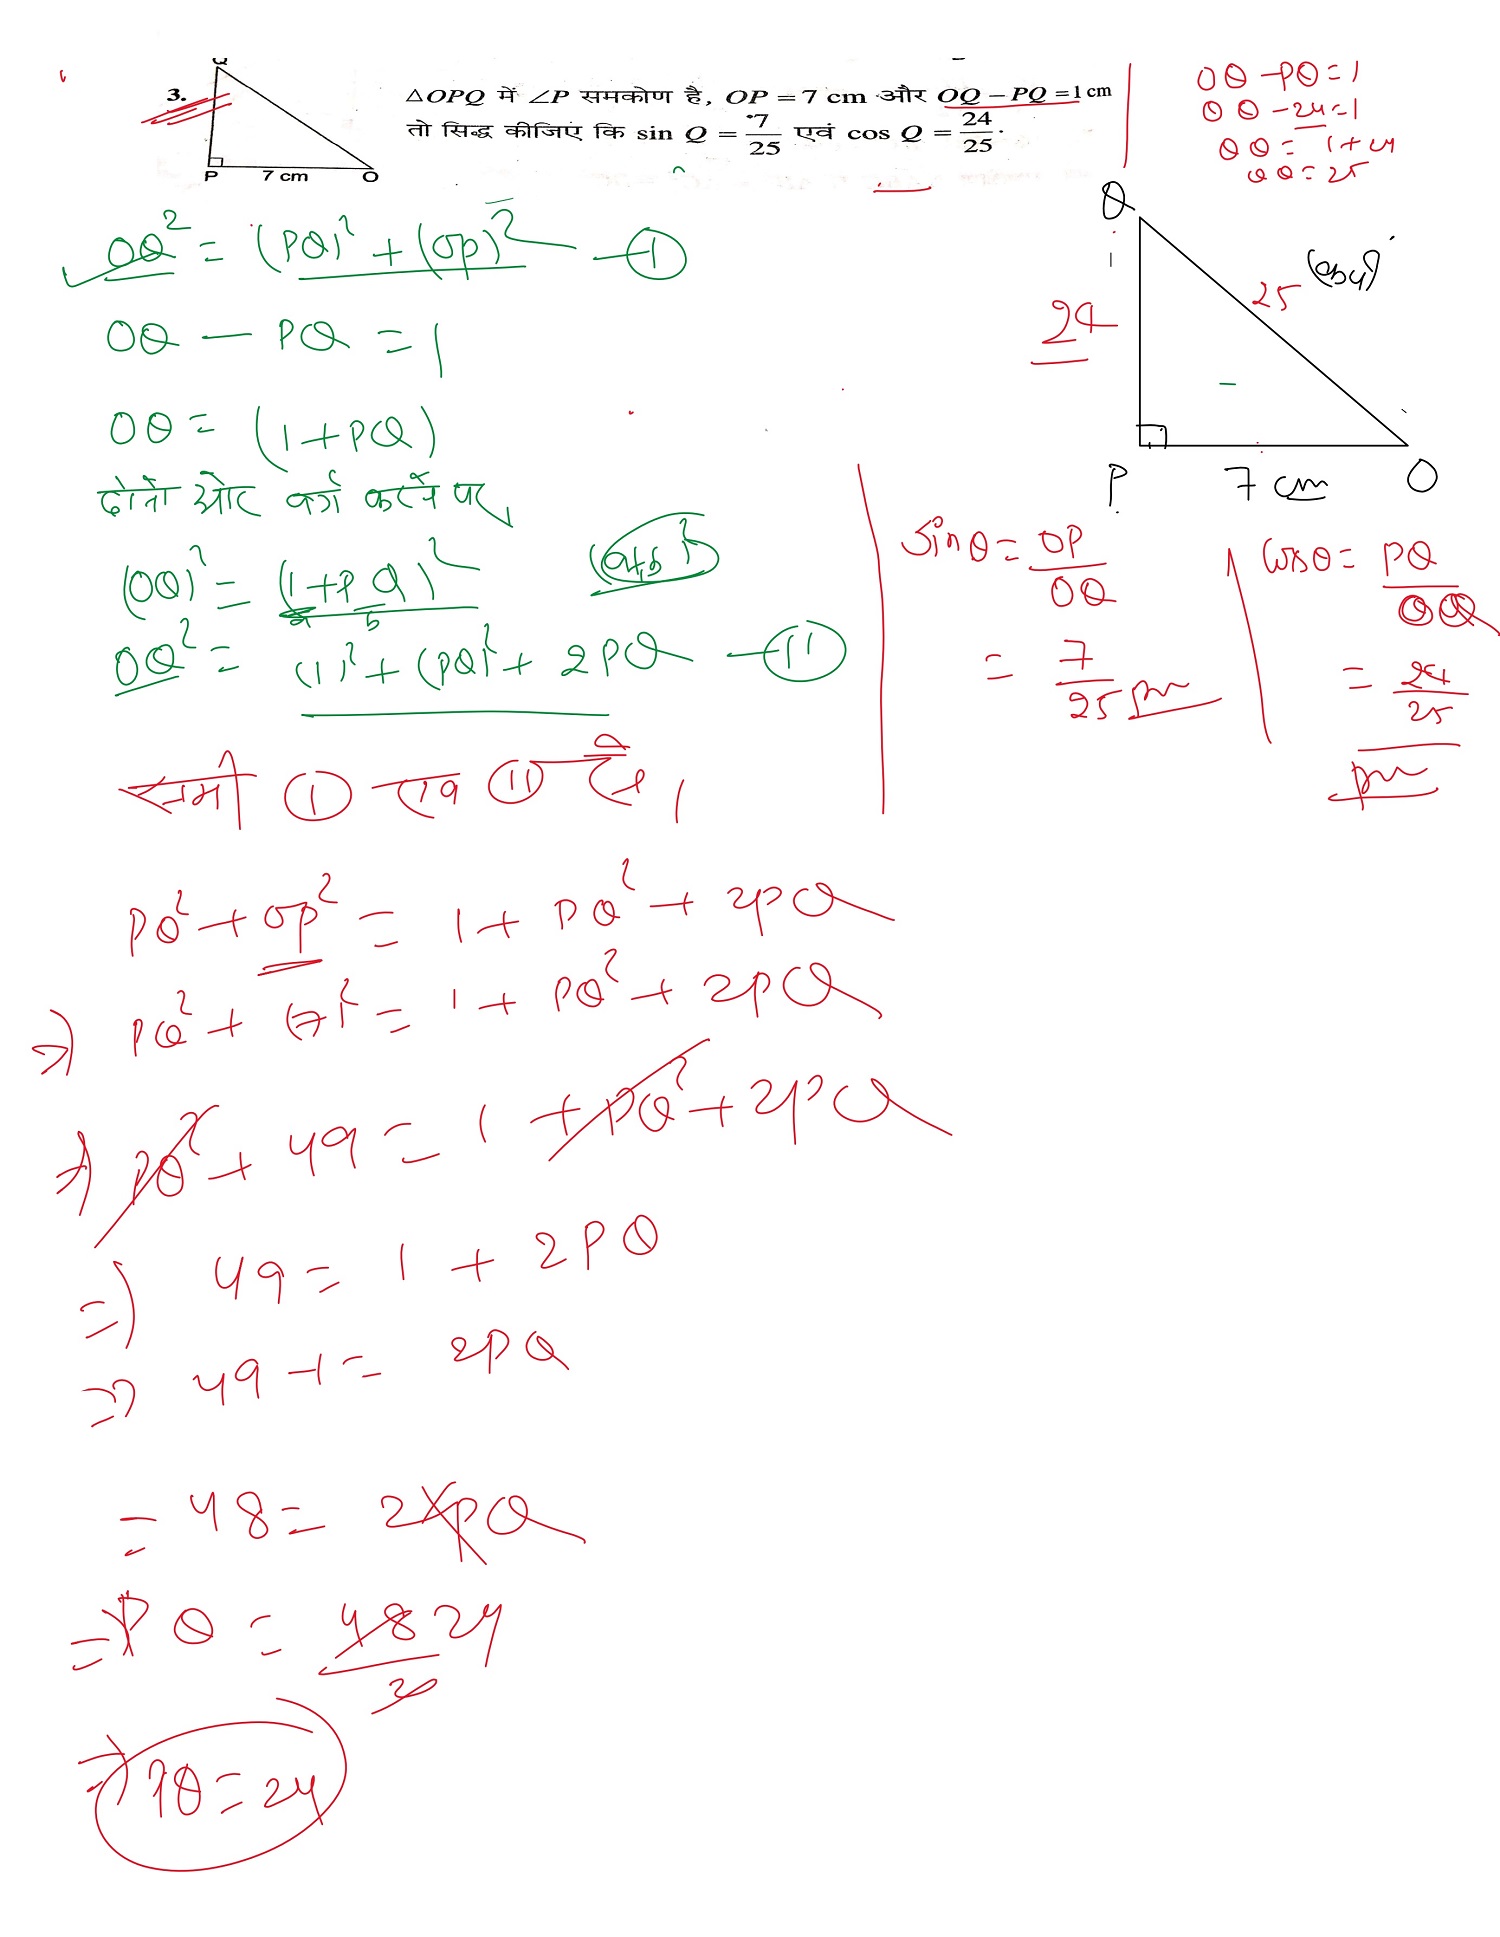 3.
Q
P 7 cm O
△OPQ में ∠P समकोण है, OP = 7 cm और OQ − PQ = 1 cm
तो सिद्ध कीजिए कि sin Q = 7/25 एवं cos Q = 24/25.
OQ − PQ = 1
OQ − 24 = 1
OQ = 1 + 24
OQ = 25
Q
24
25
P 7 cm O
OQ² = (PQ)² + (OP)² — (I)
OQ − PQ = 1
OQ = (1 + PQ)
दोनो ओर वर्ग करने पर,
(OQ)² = (1 + PQ)² (a+b)²
a b
OQ² = (1)² + (PQ)² + 2PQ — (II)
समी (I) एवं (II) से,
PQ² + OP² = 1 + PQ² + 2PQ
⇒ PQ² + (7)² = 1 + PQ² + 2PQ
⇒ PQ² + 49 = 1 + PQ² + 2PQ
⇒ 49 = 1 + 2PQ
⇒ 49 − 1 = 2PQ
= 48 = 2 × PQ
= PQ = 48/2 24
⇒ PQ = 24
Sin θ = OP/OQ
= 7/25
Cos θ = PQ/OQ
= 24/25